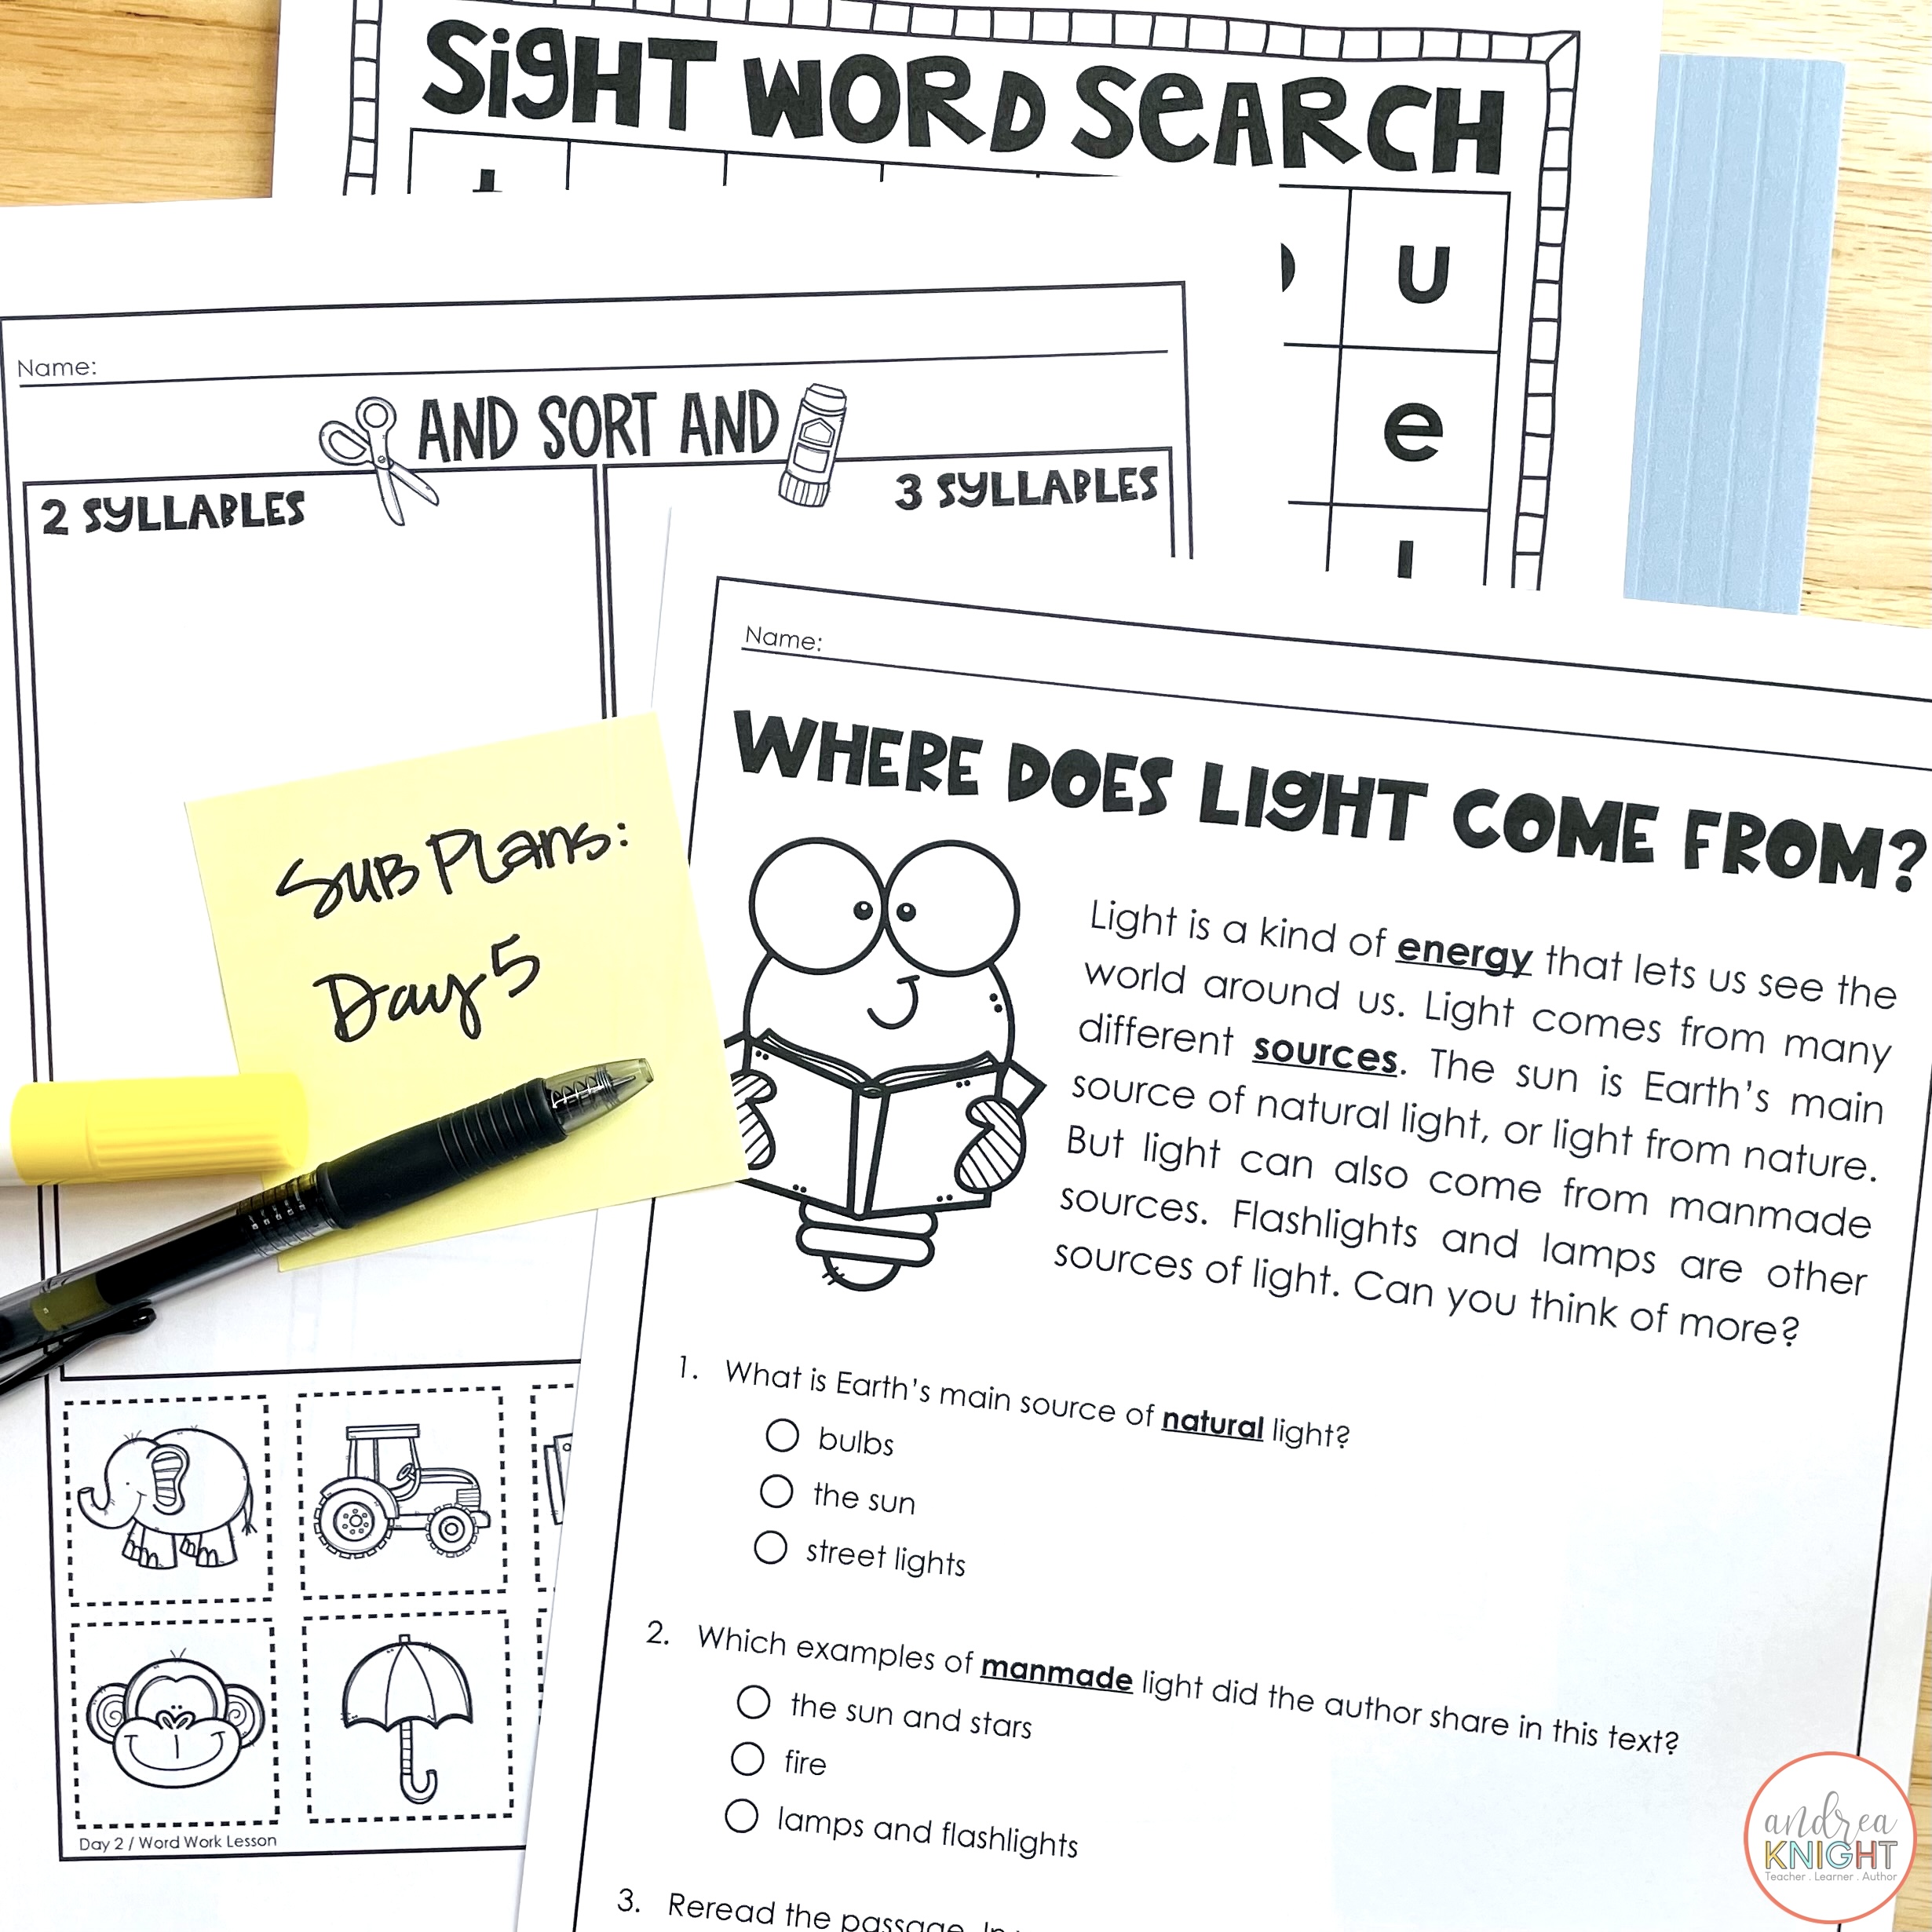 SIGHT WORD SEARCH
u
e
Name:
AND SORT AND
2 SYLLABLES
3 SYLLABLES
Sub Plans:
Day 5
Name:
WHERE DOES LIGHT COME FROM?
Light is a kind of energy that lets us see the
world around us. Light comes from many
different sources. The sun is Earth's main
source of natural light, or light from nature.
But light can also come from manmade
sources. Flashlights and lamps are other
sources of light. Can you think of more?
1. What is Earth's main source of natural light?
bulbs
the sun
street lights
2. Which examples of manmade light did the author share in this text?
the sun and stars
fire
lamps and flashlights
3. Reread the passage.
Day 2 / Word Work Lesson
andrea
KNIGHT
Teacher . Learner . Author